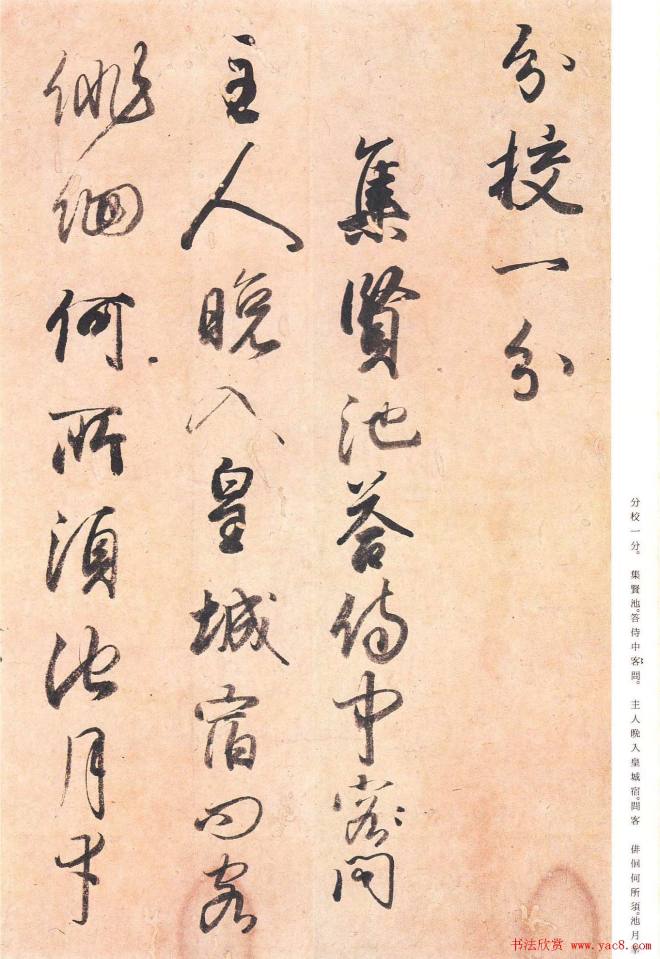 分校一分
集賢池答侍中客問
主人晚入皇城宿問客
俳佪何所須池月幸
分校一分。 集賢池。答侍中客問。 主人晚入皇城宿。問客 俳佪何所須。池月幸
书法欣赏 www.yac8.com